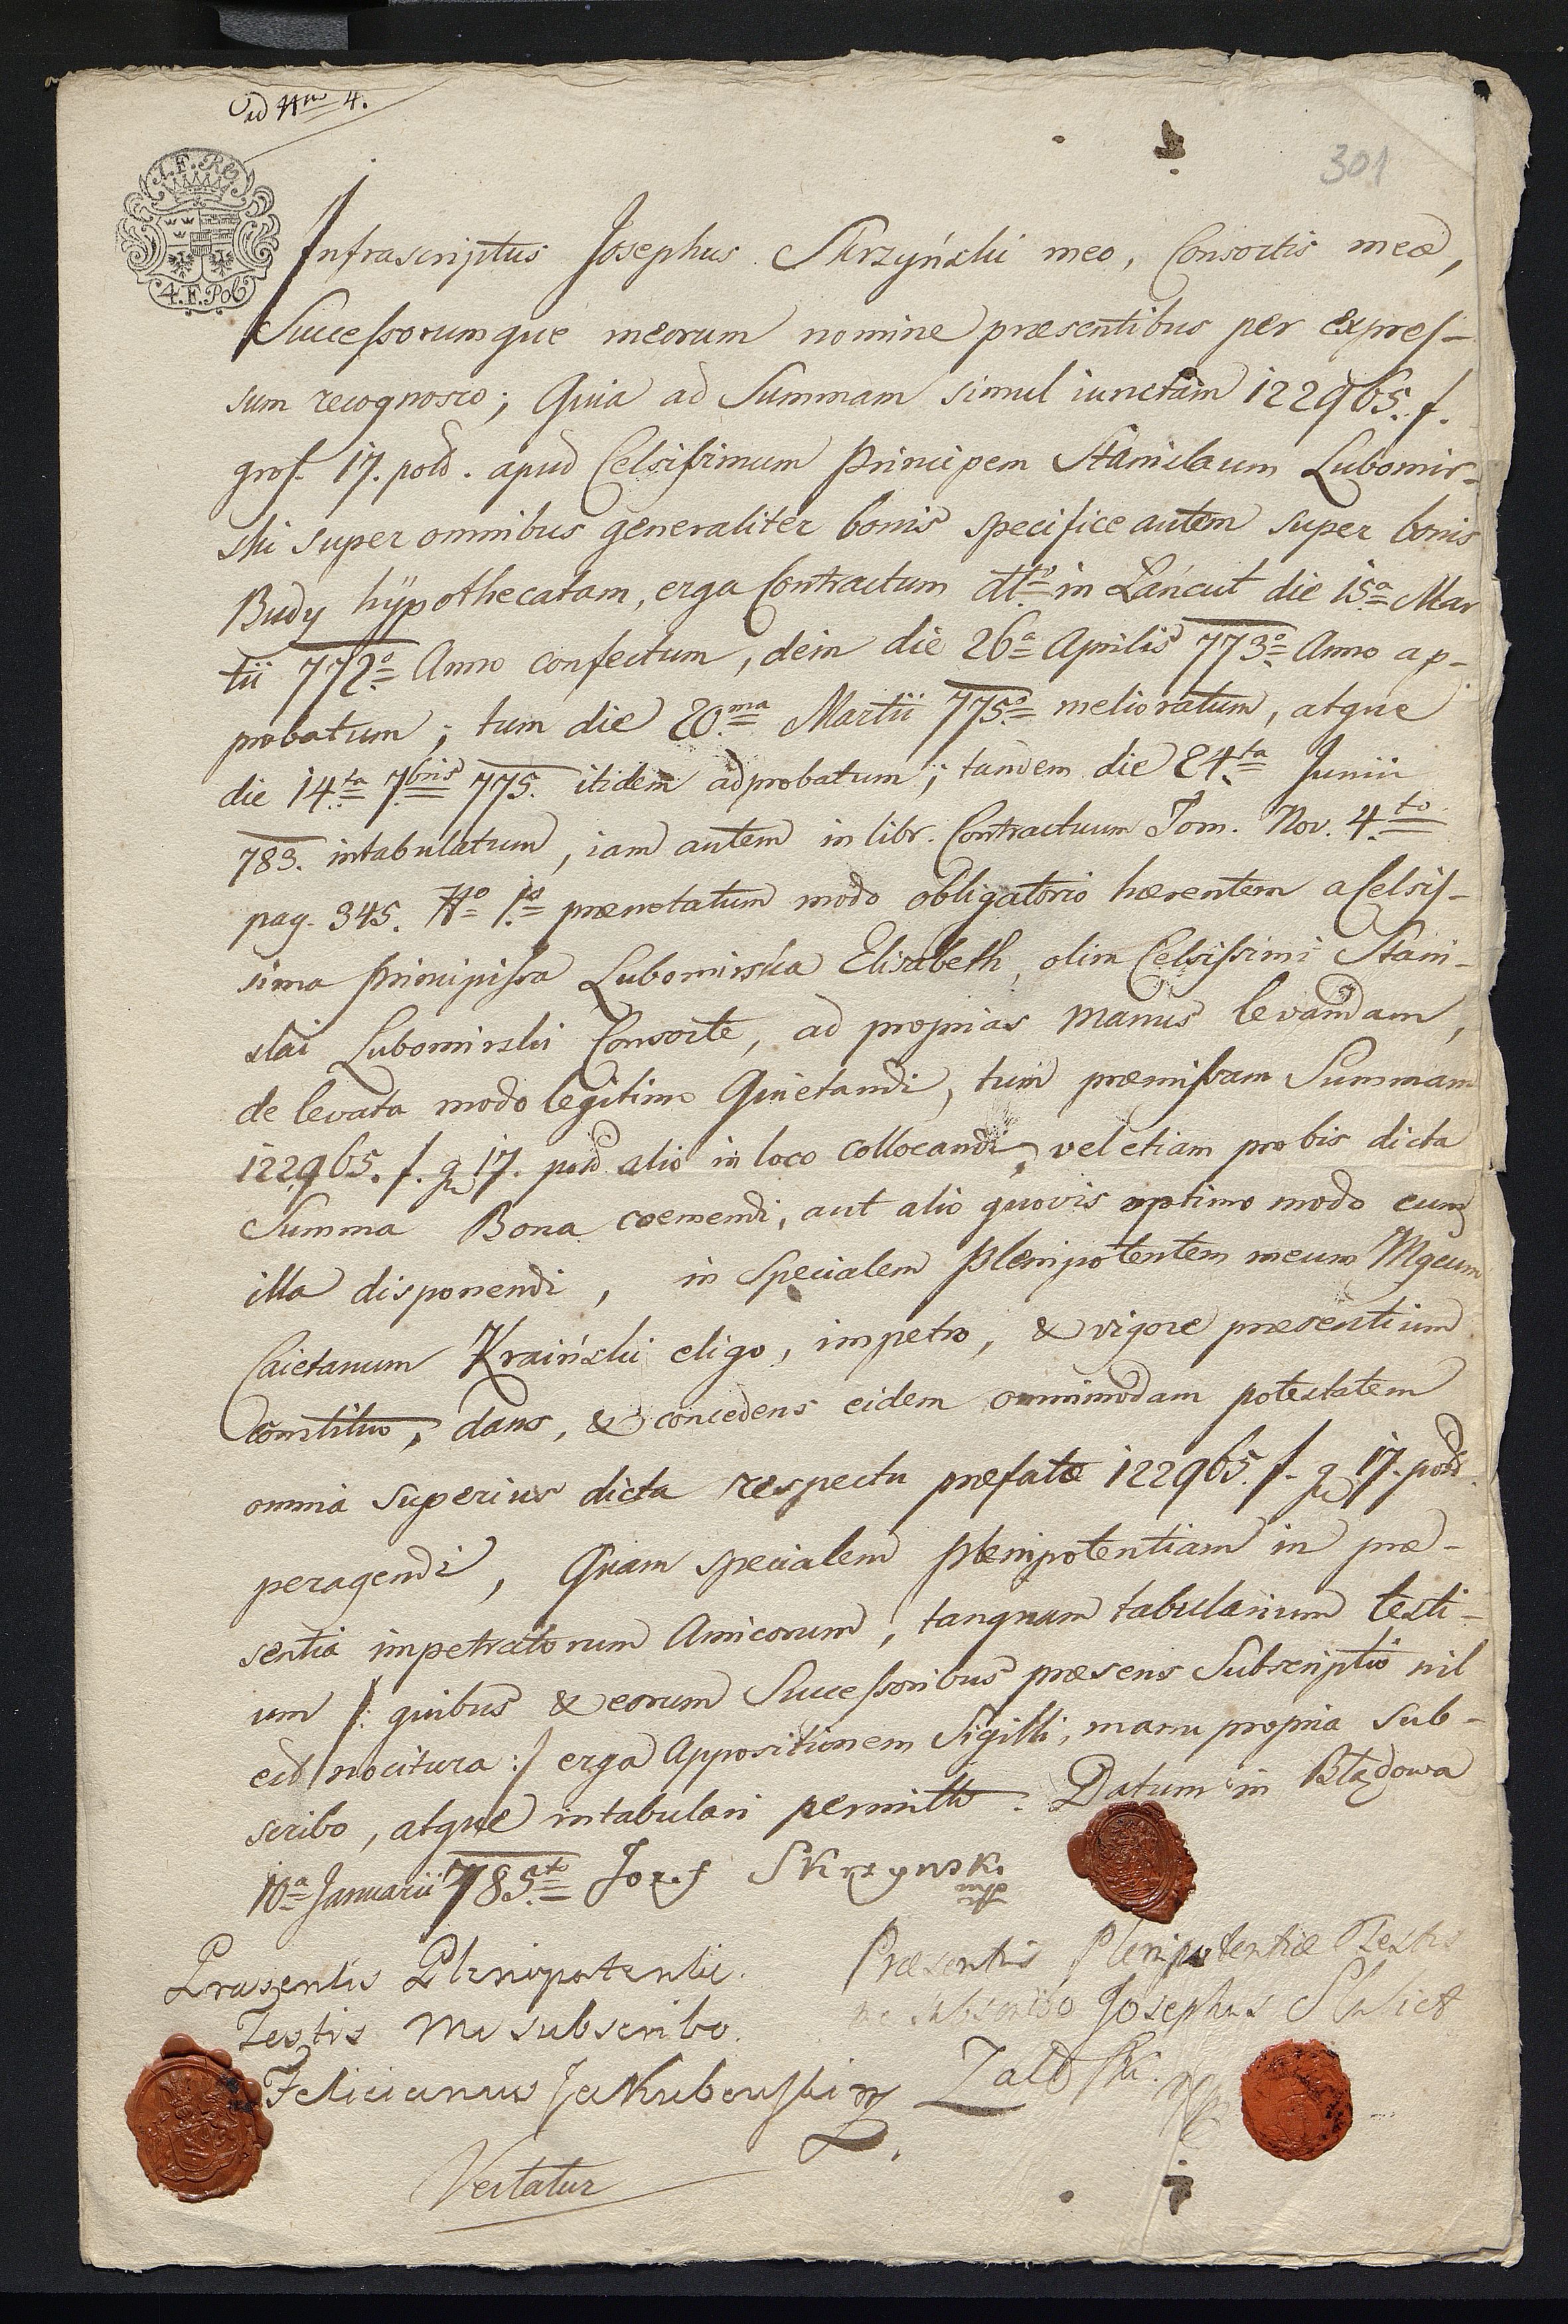 ad Nrum 4.
301
I. F. Rl
4. F. Pol
Infrascriptus Josephus Skrzyński meo, Consortis meæ,
Successorumque meorum nomine præsentibus per expres-
sum recognosco; Quia ad Summam simul iunctam 122965. f.
gros. 17. pold. apud Celsissimum Principem Stanislaum Lubomir-
ski super omnibus generaliter bonis specifice autem super bonis
Budy hÿpothecatam, erga Contractum dtto in Łańcut die 15a Mar
tii 772o Anno confectum, dein die 26a Aprilis 773o Anno ap-
probatum; tum die 20ma Martii 775o melioratum, atque
die 14ta 7bris 775. itidem adprobatum; tandem die 24ta Junii
783. intabulatum, iam autem in libr. Contractuum Tom. Nov. 4to
pag. 345. No 1o prænotatum modo obligatorio hærentem a Celsis-
sima Principissa Lubomirska Elisabeth, olim Celsissimi Stani-
slai Lubomirski Consorte, ad proprias manus levandam,
de levata modo legitimo Quietandi, tum præmissam Summam
122965. f. g 17. pold alio in loco collocandi, vel etiam pro bis dicta
Summa Bona coemendi, aut alio quovis optimo modo cum
illa disponendi, in Specialem Plenipotentem meum Mgcum
Caietanum Kraiński eligo, impetro, & vigore præsentium
constituo, dans, & concedens eidem omnimodam potestatem
omnia superius dicta respectu præfatæ 122965. f. g 17. pold.
peragendi, Quam specialem Plenipotentiam in præ-
sentia impetratorum Amicorum, tanquam tabularium testi-
um /: quibus & eorum Successoribus præsens Subscriptio nil
est nocitura :/ erga Appositionem Sigilli, manu propria sub-
scribo, atque intabulari permitto. Datum in Błażdowa
10a Januarii 785to Jozef Skrzynski
mp
Præsentis Plenipotentiæ Testis
me subscribo Josephus
Załoski. mp
Prasentis Plenipotentii.
Testis me subscribo.
Felicianus Jakubowski mp
Vertatur